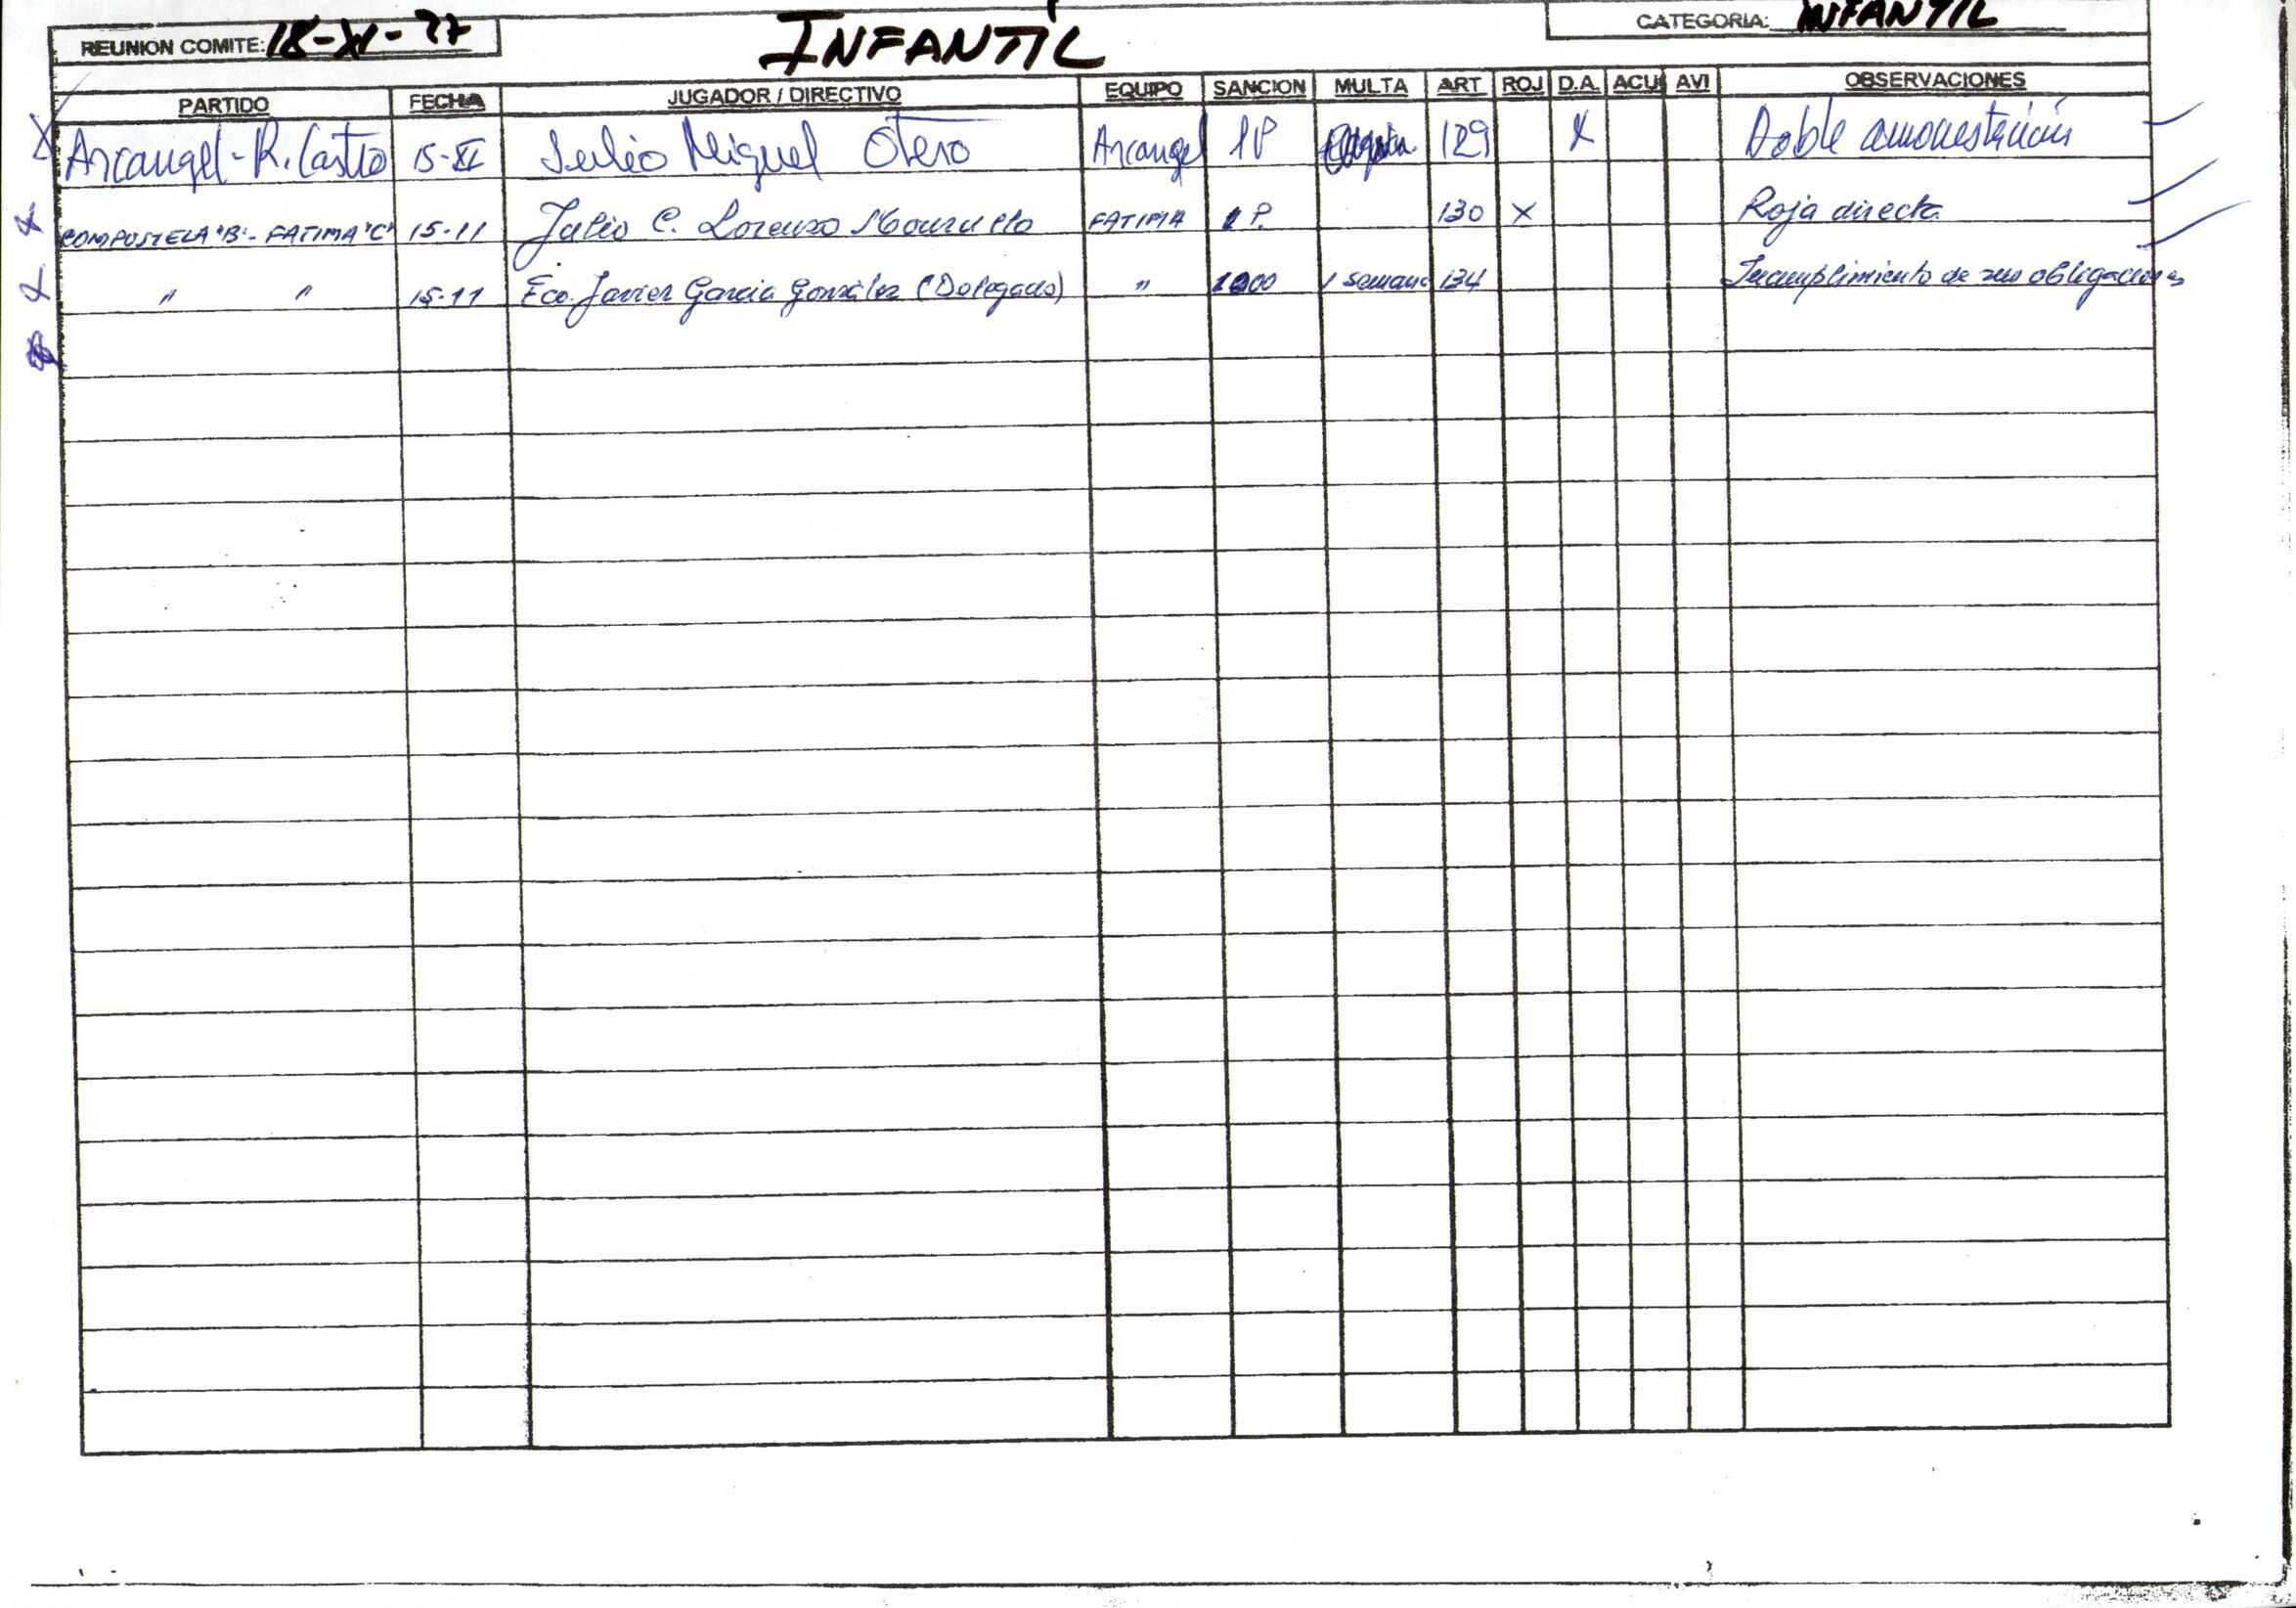 REUNION COMITE: 18-XI-97
INFANTIL
CATEGORIA: INFANTIL
PARTIDO FECHA JUGADOR / DIRECTIVO EQUIPO SANCION MULTA ART ROJ D.A. ACU AVI OBSERVACIONES
X Arcangel - R. Castro 15-XI Julio Miguel Otero Arcangel 1P 129 X Doble amonestación
X COMPOSTELA "B" - FATIMA "C" 15-11 Julio C. Lorenzo Mourullo FATIMA 1 P. 130 X Roja directa
X " " 15-11 Fco. Javier Garcia González (Delegado) " 1000 1 semana 134 Incumplimiento de sus obligaciones